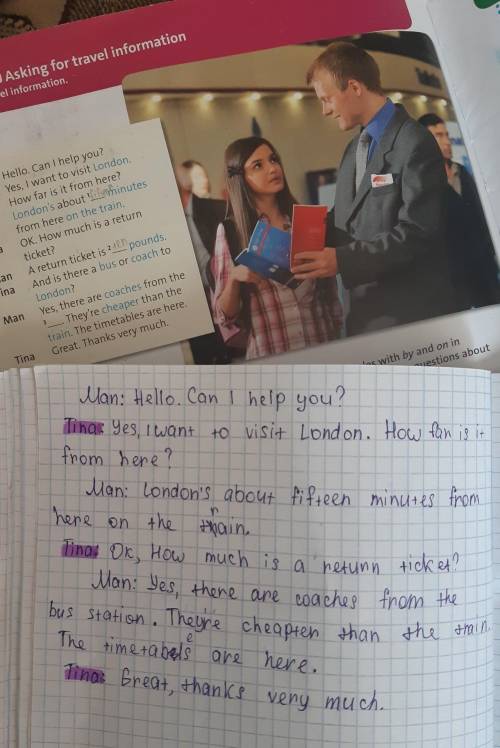 Asking for travel information
el information.
Hello. Can I help you?
Yes, I want to visit London.
How far is it from here?
London's about 1 minutes
from here on the train.
OK. How much is a return
ticket?
an A return ticket is 2 ten pounds.
ina And is there a bus or coach to
London?
Man Yes, there are coaches from the
3___. They're cheaper than the
train. The timetables are here.
Tina Great. Thanks very much.
with by and on in
questions about
Man: Hello. Can I help you?
Tina: Yes, I want to visit London. How far is it
from here?
Man: London's about fifteen minutes from
here on the train.
Tina: Ok, How much is a return ticket?
Man: Yes, there are coaches from the
bus station. They're cheapter than the train.
The timetabels are here.
Tina: Great, thanks very much.